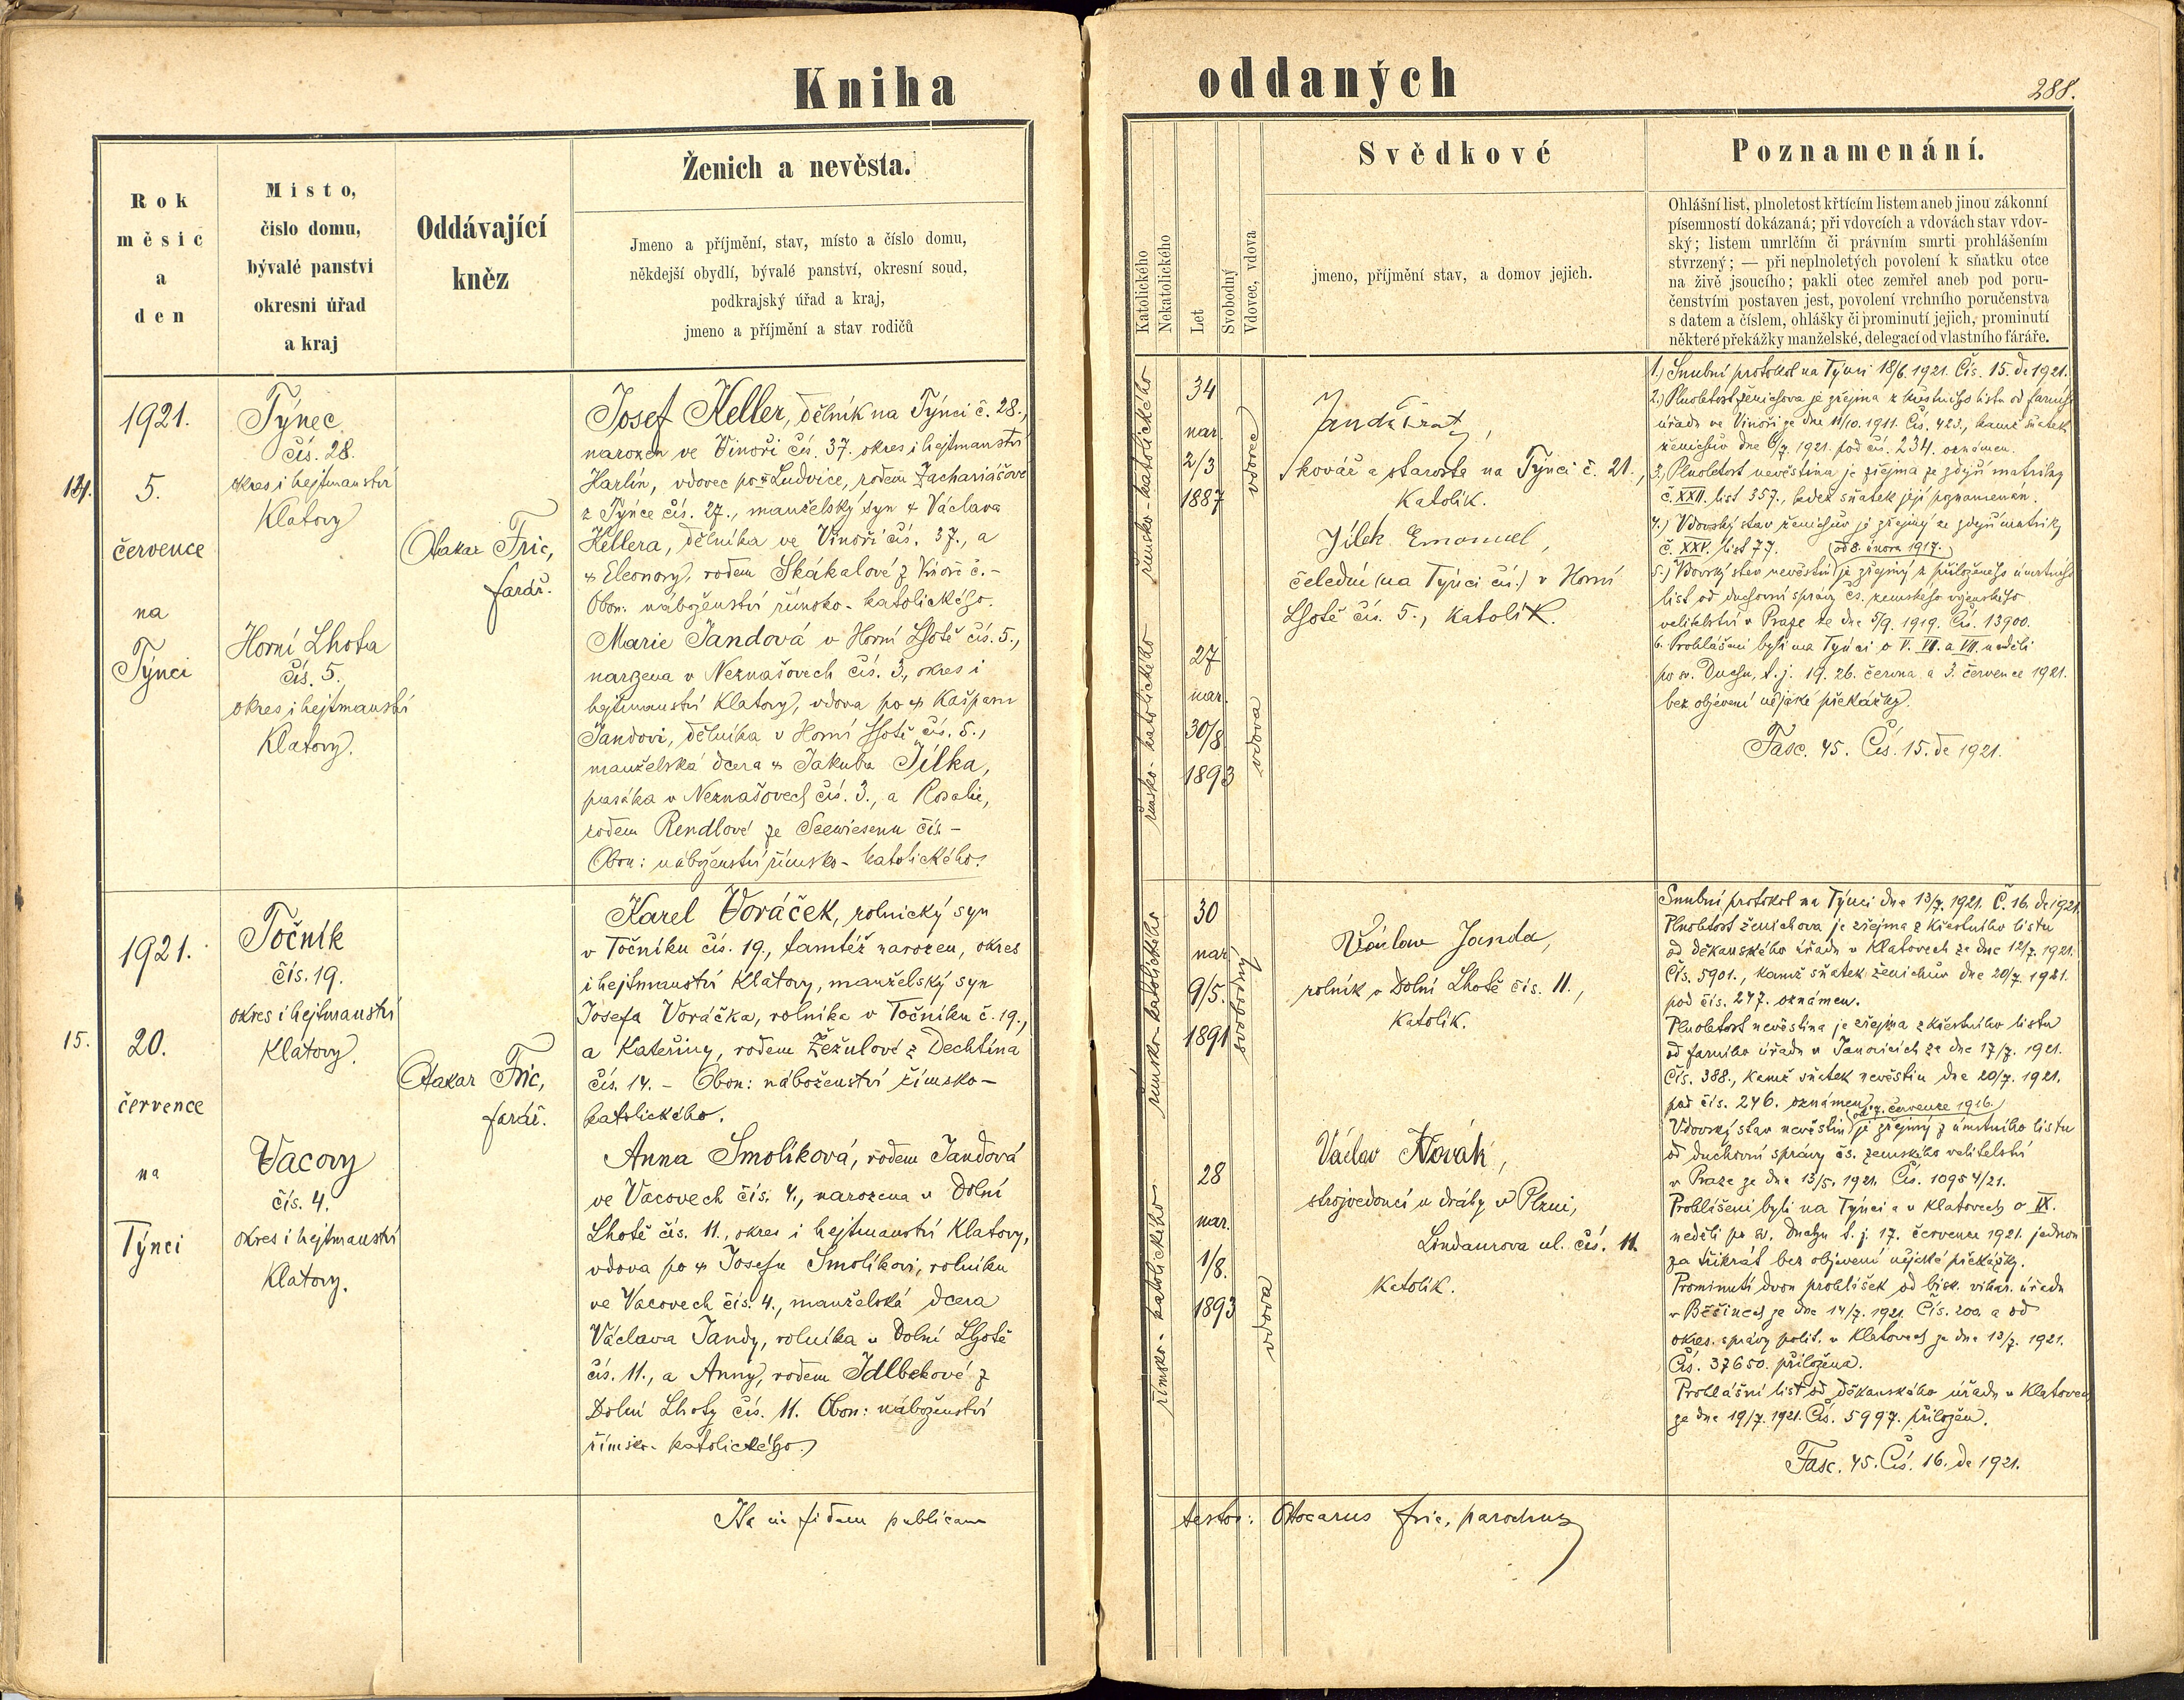 Kniha
oddaných
288.
Rok
měsíc
a
den
Místo,
číslo domu,
bývalé panství
okresní úřad
a kraj
Oddávající
kněz
Ženich a nevěsta.
Jmeno a příjmění, stav, místo a číslo domu,
někdejší obydlí, bývalé panství, okresní soud,
podkrajský úřad a kraj,
jmeno a příjmění a stav rodičů
Katolického
Nekatolického
Let
Svobodný
Vdovec, vdova
Svědkové
jmeno, příjmění stav, a domov jejich.
Poznamenání.
Ohlášní list, plnoletost křtícím listem aneb jinou zákonní
písemností dokázaná; při vdovcích a vdovách stav vdov-
ský; listem umrlčím či právním smrti prohlášením
stvrzený; — při neplnoletých povolení k sňatku otce
na živě jsoucího; pakli otec zemřel aneb pod poru-
čenstvím postaven jest, povolení vrchního poručenstva
s datem a číslem, ohlášky či prominutí jejich, prominutí
některé překážky manželské, delegací od vlastního faráře.
14.
1921.
5.
července
na
Týnci
Týnec
čís. 28.
okres i hejtmanství
Klatovy
Horní Lhota
čís. 5.
okres i hejtmanství
Klatovy.
Otakar Fric,
farář.
Josef Heller, dělník na Týnci č. 28.,
narozen ve Vinoři čís. 37. okres i hejtmanství
Karlín, vdovec po † Ludvice, rodem Zachariášové
z Týnce čís. 27., manželský syn † Václava
Hellera, dělníka ve Vinoři čís. 37., a
† Eleonory, rodem Skákalové z Vinoře č. -
Obou: náboženství římsko-katolického.
Marie Jandová v Horní Lhotě čís. 5.,
narozena v Neznašovech čís. 3., okres i
hejtmanství Klatovy, vdova po † Kašparu
Jandovi, dělníka v Horní Lhotě čís. 5.,
manželská dcera † Jakuba Jílka,
pasáka v Neznašovech čís. 3., a Rosalie,
rodem Rendlové ze Seewiesenu čís. -
Obou: náboženství římsko-katolického.
římsko-katolického
34
nar.
2/3
1887
vdovec
římsko-katolického
27
nar.
30/8
1893
vdova
Janda
kovář a starosta na Týnci č. 21.,
Katolík.
Jílek Emanuel,
čeledín (na Týnci čís.) v Horní
Lhotě čís. 5., katolík.
1.) Snubní protokol na Týnci 18/6. 1921. Čís. 15. de 1921.
2.) Plnoletost ženichova je zřejma z křestního listu od farního
úřadu ve Vinoři ze dne 11/10. 1911. Čís. 423., kamž sňatek
ženichův dne 6/7. 1921. pod čís. 234. oznámen.
3.) Plnoletost nevěstina je zřejma ze zdejší matriky
č. XXII. list 357., kdež sňatek její poznamenán.
4.) Vdovský stav ženichův je zřejmý ze zdejší matriky
č. XXV. list 77. (od 8. února 1917.)
5.) Vdovský stav nevěstin je zřejmý z přiloženého úmrtního
list od duchovní správy čs. zemského vojenského
velitelství v Praze ze dne 5/9. 1919. Čís. 13900.
6. Prohlášeni byli na Týnci o V. VI. a VII. neděli
po sv. Duchu, t. j. 19. 26. června a 3. července 1921.
bez objevení nějaké překážky.
Fasc. 45. Čís. 15. de 1921.
15.
1921.
20.
července
na
Týnci
Točník
čís. 19.
okres i hejtmanství
Klatovy.
Vacovy
čís. 4.
okres i hejtmanství
Klatovy.
Otakar Fric,
farář.
Karel Voráček, rolnický syn
v Točníku čís. 19., tamtéž narozen, okres
i hejtmanství Klatovy, manželský syn
Josefa Voráčka, rolníka v Točníku č. 19.,
a Kateřiny, rodem Žežulové z Dechtína
čís. 14. - Obou: náboženství římsko-
katolického.
Anna Smolíková, rodem Jandová
ve Vacovech čís. 4., narozena v Dolní
Lhotě čís. 11., okres i hejtmanství Klatovy,
vdova po † Josefu Smolíkovi, rolníku
ve Vacovech čís. 4., manželská dcera
Václava Jandy, rolníka v Dolní Lhotě
čís. 11., a Anny, rodem Idlbekové z
Dolní Lhoty čís. 11. Obou: náboženství
římsko-katolického.
římsko-katolického
30
nar.
9/5.
1891
svobodný
římsko-katolického
28
nar.
1/8.
1893
vdova
Václav Janda,
rolník v Dolní Lhotě čís. 11.,
Katolík.
Václav Novák,
strojvedoucí u dráhy v Plzni,
Lindaurova ul. čís. 11.
Katolík.
Snubní protokol na Týnci dne 13/7. 1921. Č. 16. de 1921.
Plnoletost ženichova je zřejma z křestního listu
od děkanského úřadu v Klatovech ze dne 12/7. 1921.
Čís. 5901., kamž sňatek ženichův dne 20/7. 1921.
pod čís. 247. oznámen.
Plnoletost nevěstina je zřejma z křestního listu
od farního úřadu v Janovicích ze dne 17/7. 1921.
Čís. 388., kamž sňatek nevěstin dne 20/7. 1921.
pod čís. 246. oznámen.
(od 7. července 1916.)
Vdovský stav nevěstin je zřejmý z úmrtního listu
od duchovní správy čs. zemského velitelství
v Praze ze dne 13/5. 1921. Čís. 10954/21.
Prohlášeni byli na Týnci a v Klatovech o IX.
neděli po sv. Duchu t. j. 17. července 1921. jednou
za třikrát bez objevení nějaké překážky.
Prominutí dvou prohlášek od bisk. vikar. úřadu
v Běšinech ze dne 14/7. 1921. Čís. 200. a od
okres. správy polit. v Klatovech ze dne 13/7. 1921.
Čís. 37650. přiložena.
Prohlášní list od děkanského úřadu v Klatovech
ze dne 19/7. 1921. Čís. 5997. přiložen.
Fasc. 45. Čís. 16. de 1921.
Ita in fidem publicam
testor: Ottocarus Fric, parochus